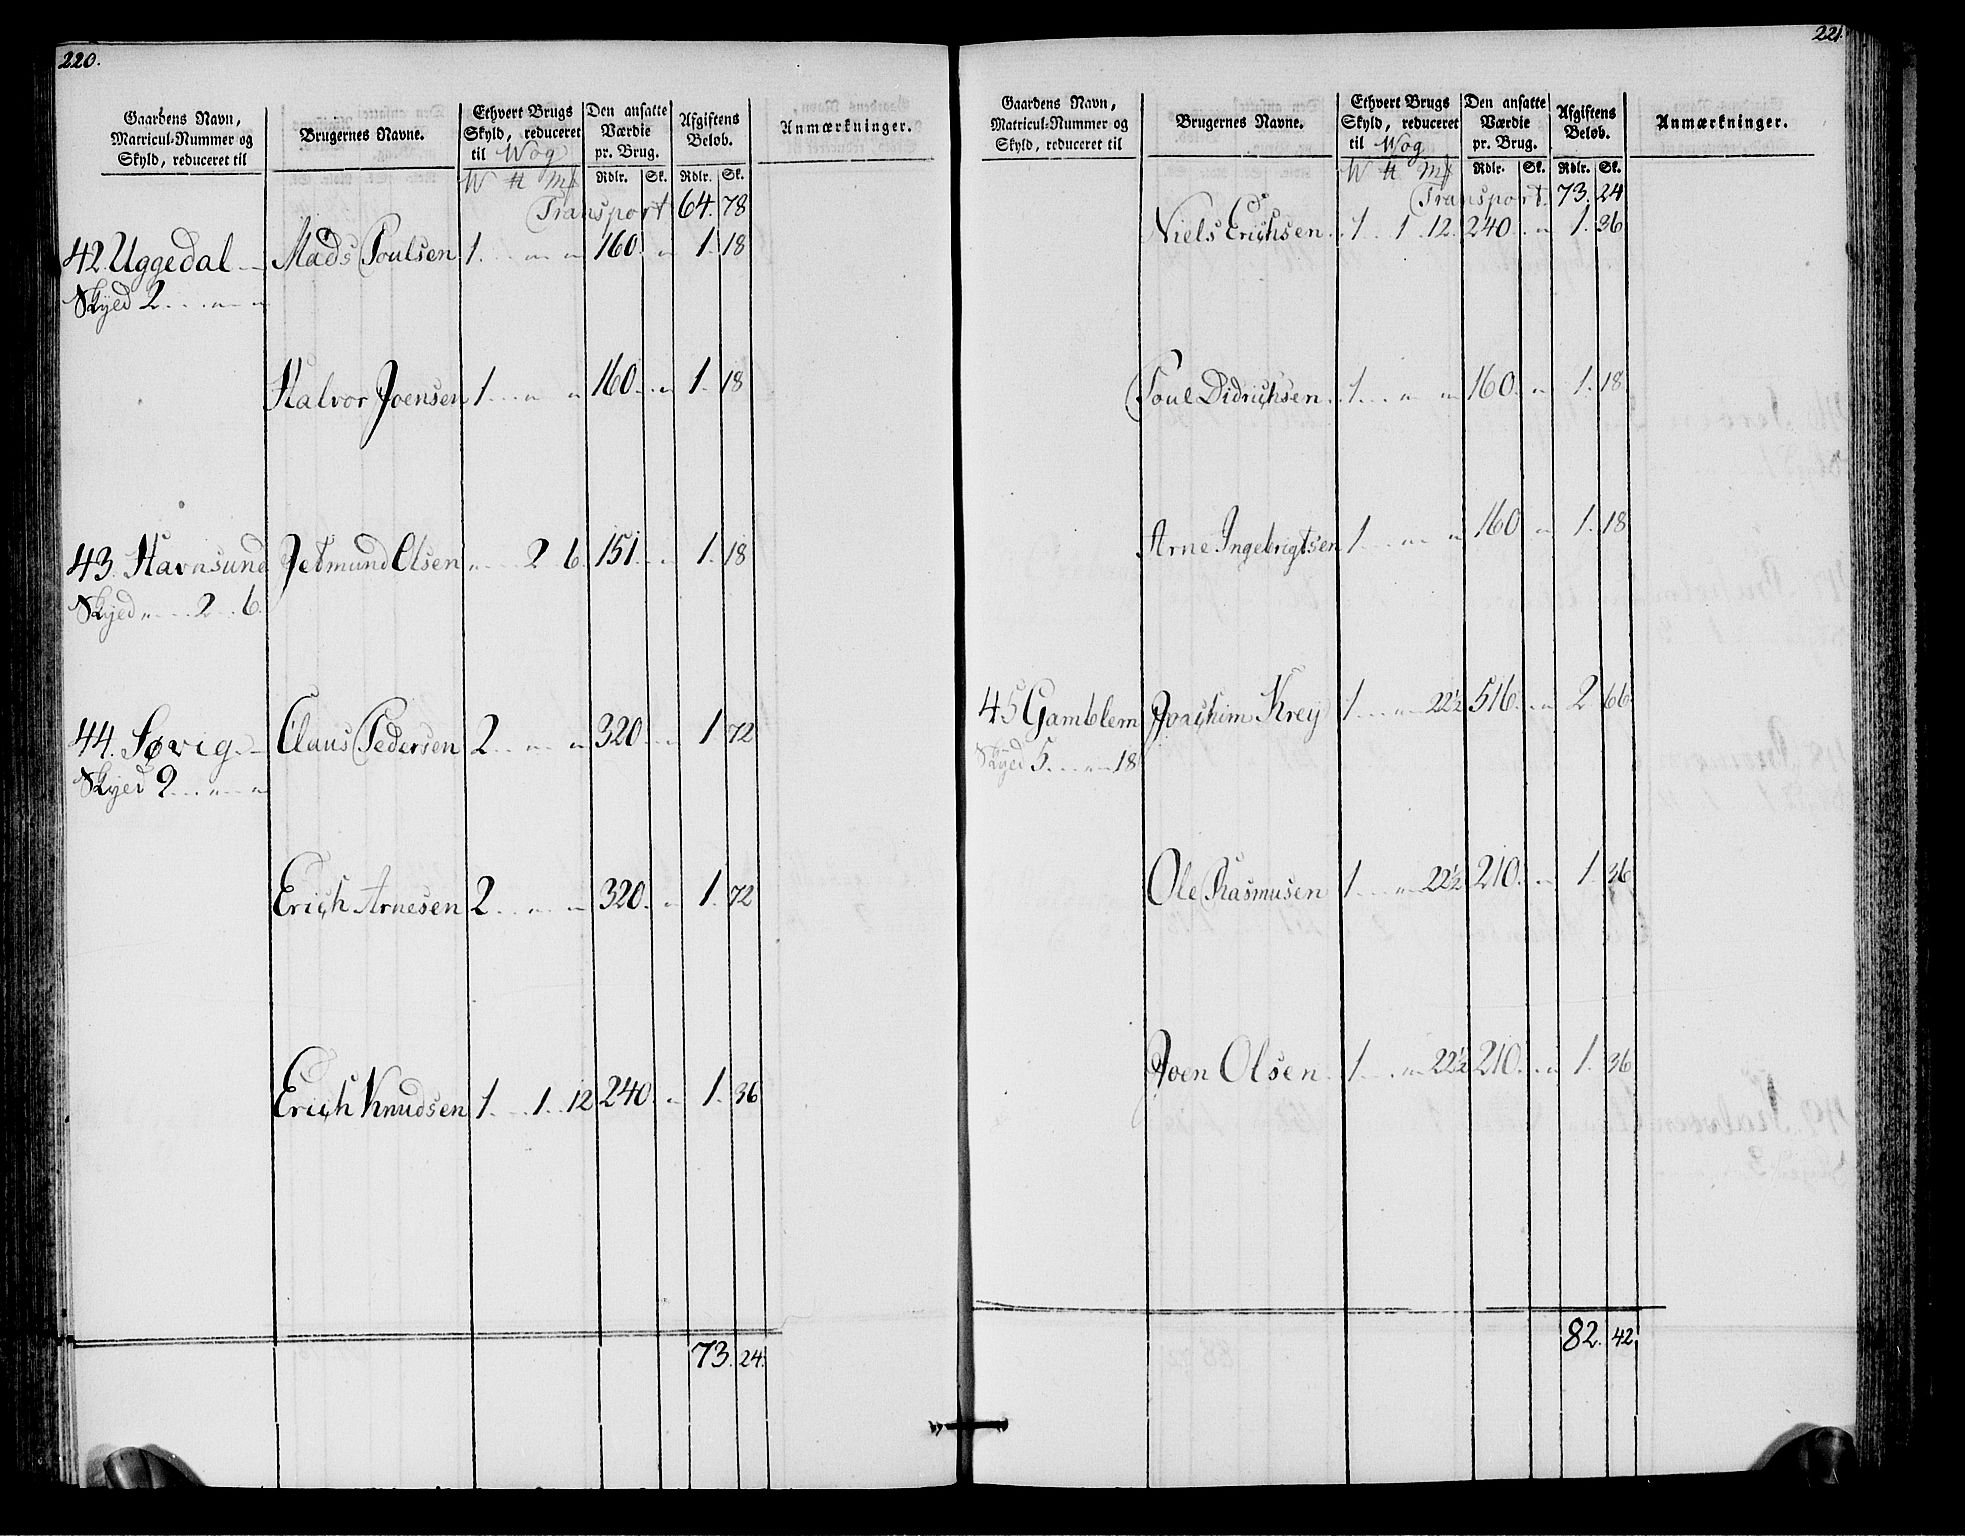 220.
Gaardens Navn, Matricul-Nummer og Skyld, reduceret til
Brugernes Navne.
Ethvert Brugs Skyld, reduceret til Wog
Den ansatte Værdie pr. Brug.
Afgiftens Beløb.
Anmærkninger.
W ℔ Mk Rdlr. Sk. Rdlr. Sk.
Transport 64. 78
42. Uggedal Mads Poulsen 1. „ „ 160. „ 1. 18
Skyed 2 . . . „ „
Halvor Joensen 1 . . . „ „ 160. . „ 1. 18
43. Havnsund Jetmund Olsen „ . . 2 6. 151. . . 1. 18
Skyed „ . . . 2 . . 6.
44. Søvig Claus Pedersen 2 . . „ „ 320 . . „ 1. 72
Skyed 2 . . . „ . . „
Erich Arnesen 2 . . „ . . „ 320. „ 1. 72
Erich Knudsen 1 . . . 1. . 12 240 . . „ 1. 36
73. 24.
221.
Gaardens Navn, Matricul-Nummer og Skyld, reduceret til
Brugernes Navne.
Ethvert Brugs Skyld, reduceret til Wog
Den ansatte Værdie pr. Brug.
Afgiftens Beløb.
Anmærkninger.
W ℔ Mk Rdlr. Sk. Rdlr. Sk.
Transport. 73. 24
Niels Erichsen 1 . . 1 . 12. 240 . „ 1. 36
Poul Didrichsen 1 . . . „ „ 160. „ 1. 18
Arne Ingebrigtsen 1 . . . „ „ 160 „ 1. 18
45 Gamblem Joachim Krey 1 . . . „ 22½ 516. . „ 2 66
Skyed 5 . . . „ 18
Ole Rasmusen 1 . . . „ 22½ 210. . „ 1. 36
Joen Olsen 1 . . . „ 22½ 210. . „ 1. 36
82. 42.